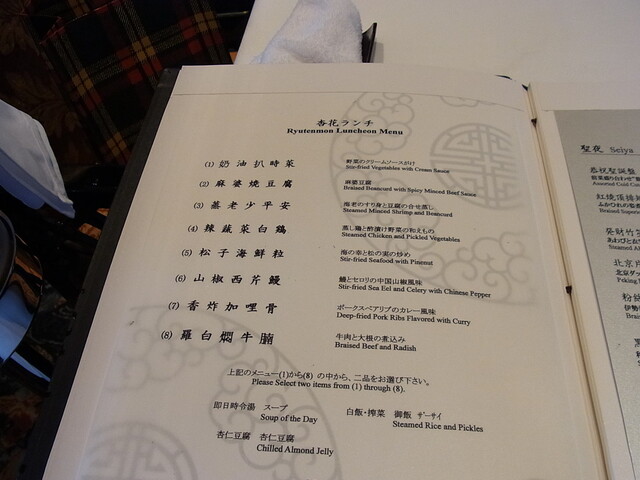 杏花ランチ
Ryutenmon Luncheon Menu
(1) 奶油扒時菜 野菜のクリームソースがけ
Stir-fried Vegetables with Cream Sauce
(2) 麻婆燒豆腐 麻婆豆腐
Braised Beancurd with Spicy Minced Beef Sauce
(3) 蒸老少平安 海老のすり身と豆腐の合せ蒸し
Steamed Minced Shrimp and Beancurd
(4) 辣蔬菜白鶏 蒸し鶏と酢漬け野菜の和えもの
Steamed Chicken and Pickled Vegetables
(5) 松子海鮮粒 海の幸と松の実の炒め
Stir-fried Seafood with Pinenut
(6) 山椒西芹鰻 鰻とセロリの中国山椒風味
Stir-fried Sea Eel and Celery with Chinese Pepper
(7) 香炸加哩骨 ポークスペアリブのカレー風味
Deep-fried Pork Ribs Flavored with Curry
(8) 羅白燜牛腩 牛肉と大根の煮込み
Braised Beef and Radish
上記のメニュー(1)から(8) の中から、二品をお選び下さい。
Please Select two items from (1) through (8).
即日時令湯 スープ
Soup of the Day
白飯・搾菜 御飯 ザーサイ
Steamed Rice and Pickles
杏仁豆腐 杏仁豆腐
Chilled Almond Jelly
聖夜 Seiya
恭祝聖誕盤
Assorted Cold
紅燒頂
ふかひれの
Braised
発財竹
あわびと
Steamed
北京
北京ダ
Peking
粉
伊勢